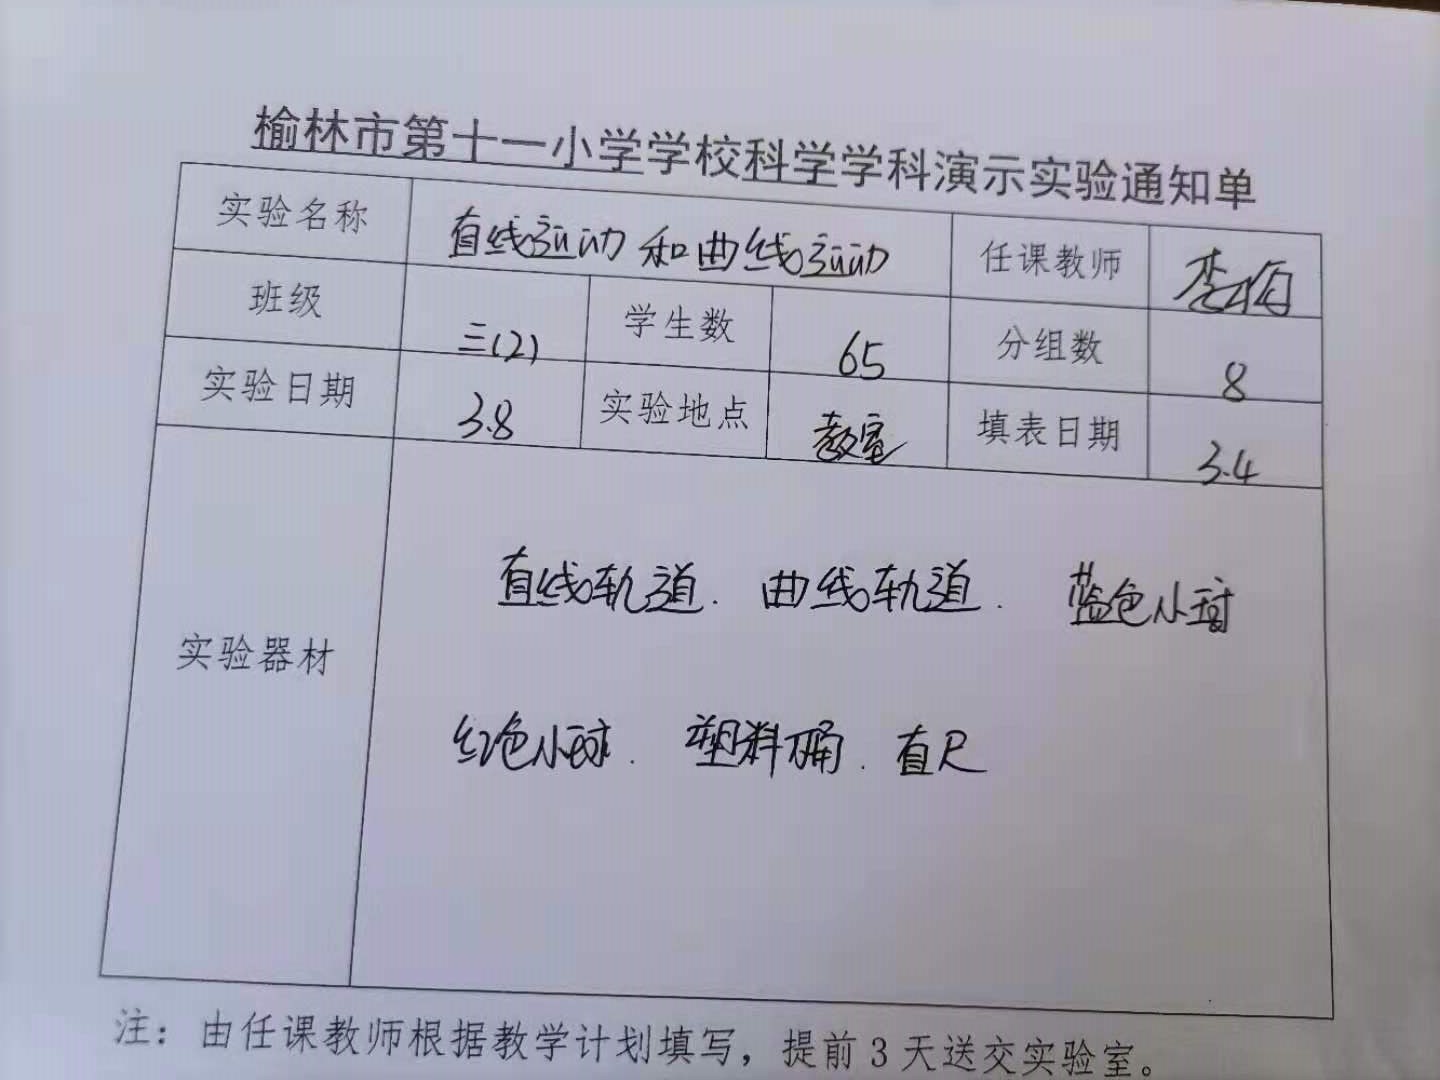 榆林市第十一小学学校科学学科演示实验通知单
实验名称 直线运动和曲线运动 任课教师 李
班级 三(2) 学生数 65 分组数 8
实验日期 3.8 实验地点 教室 填表日期 3.4
直线轨道. 曲线轨道. 蓝色小球
实验器材
红色小球. 塑料桶. 直尺
注：由任课教师根据教学计划填写，提前3天送交实验室。